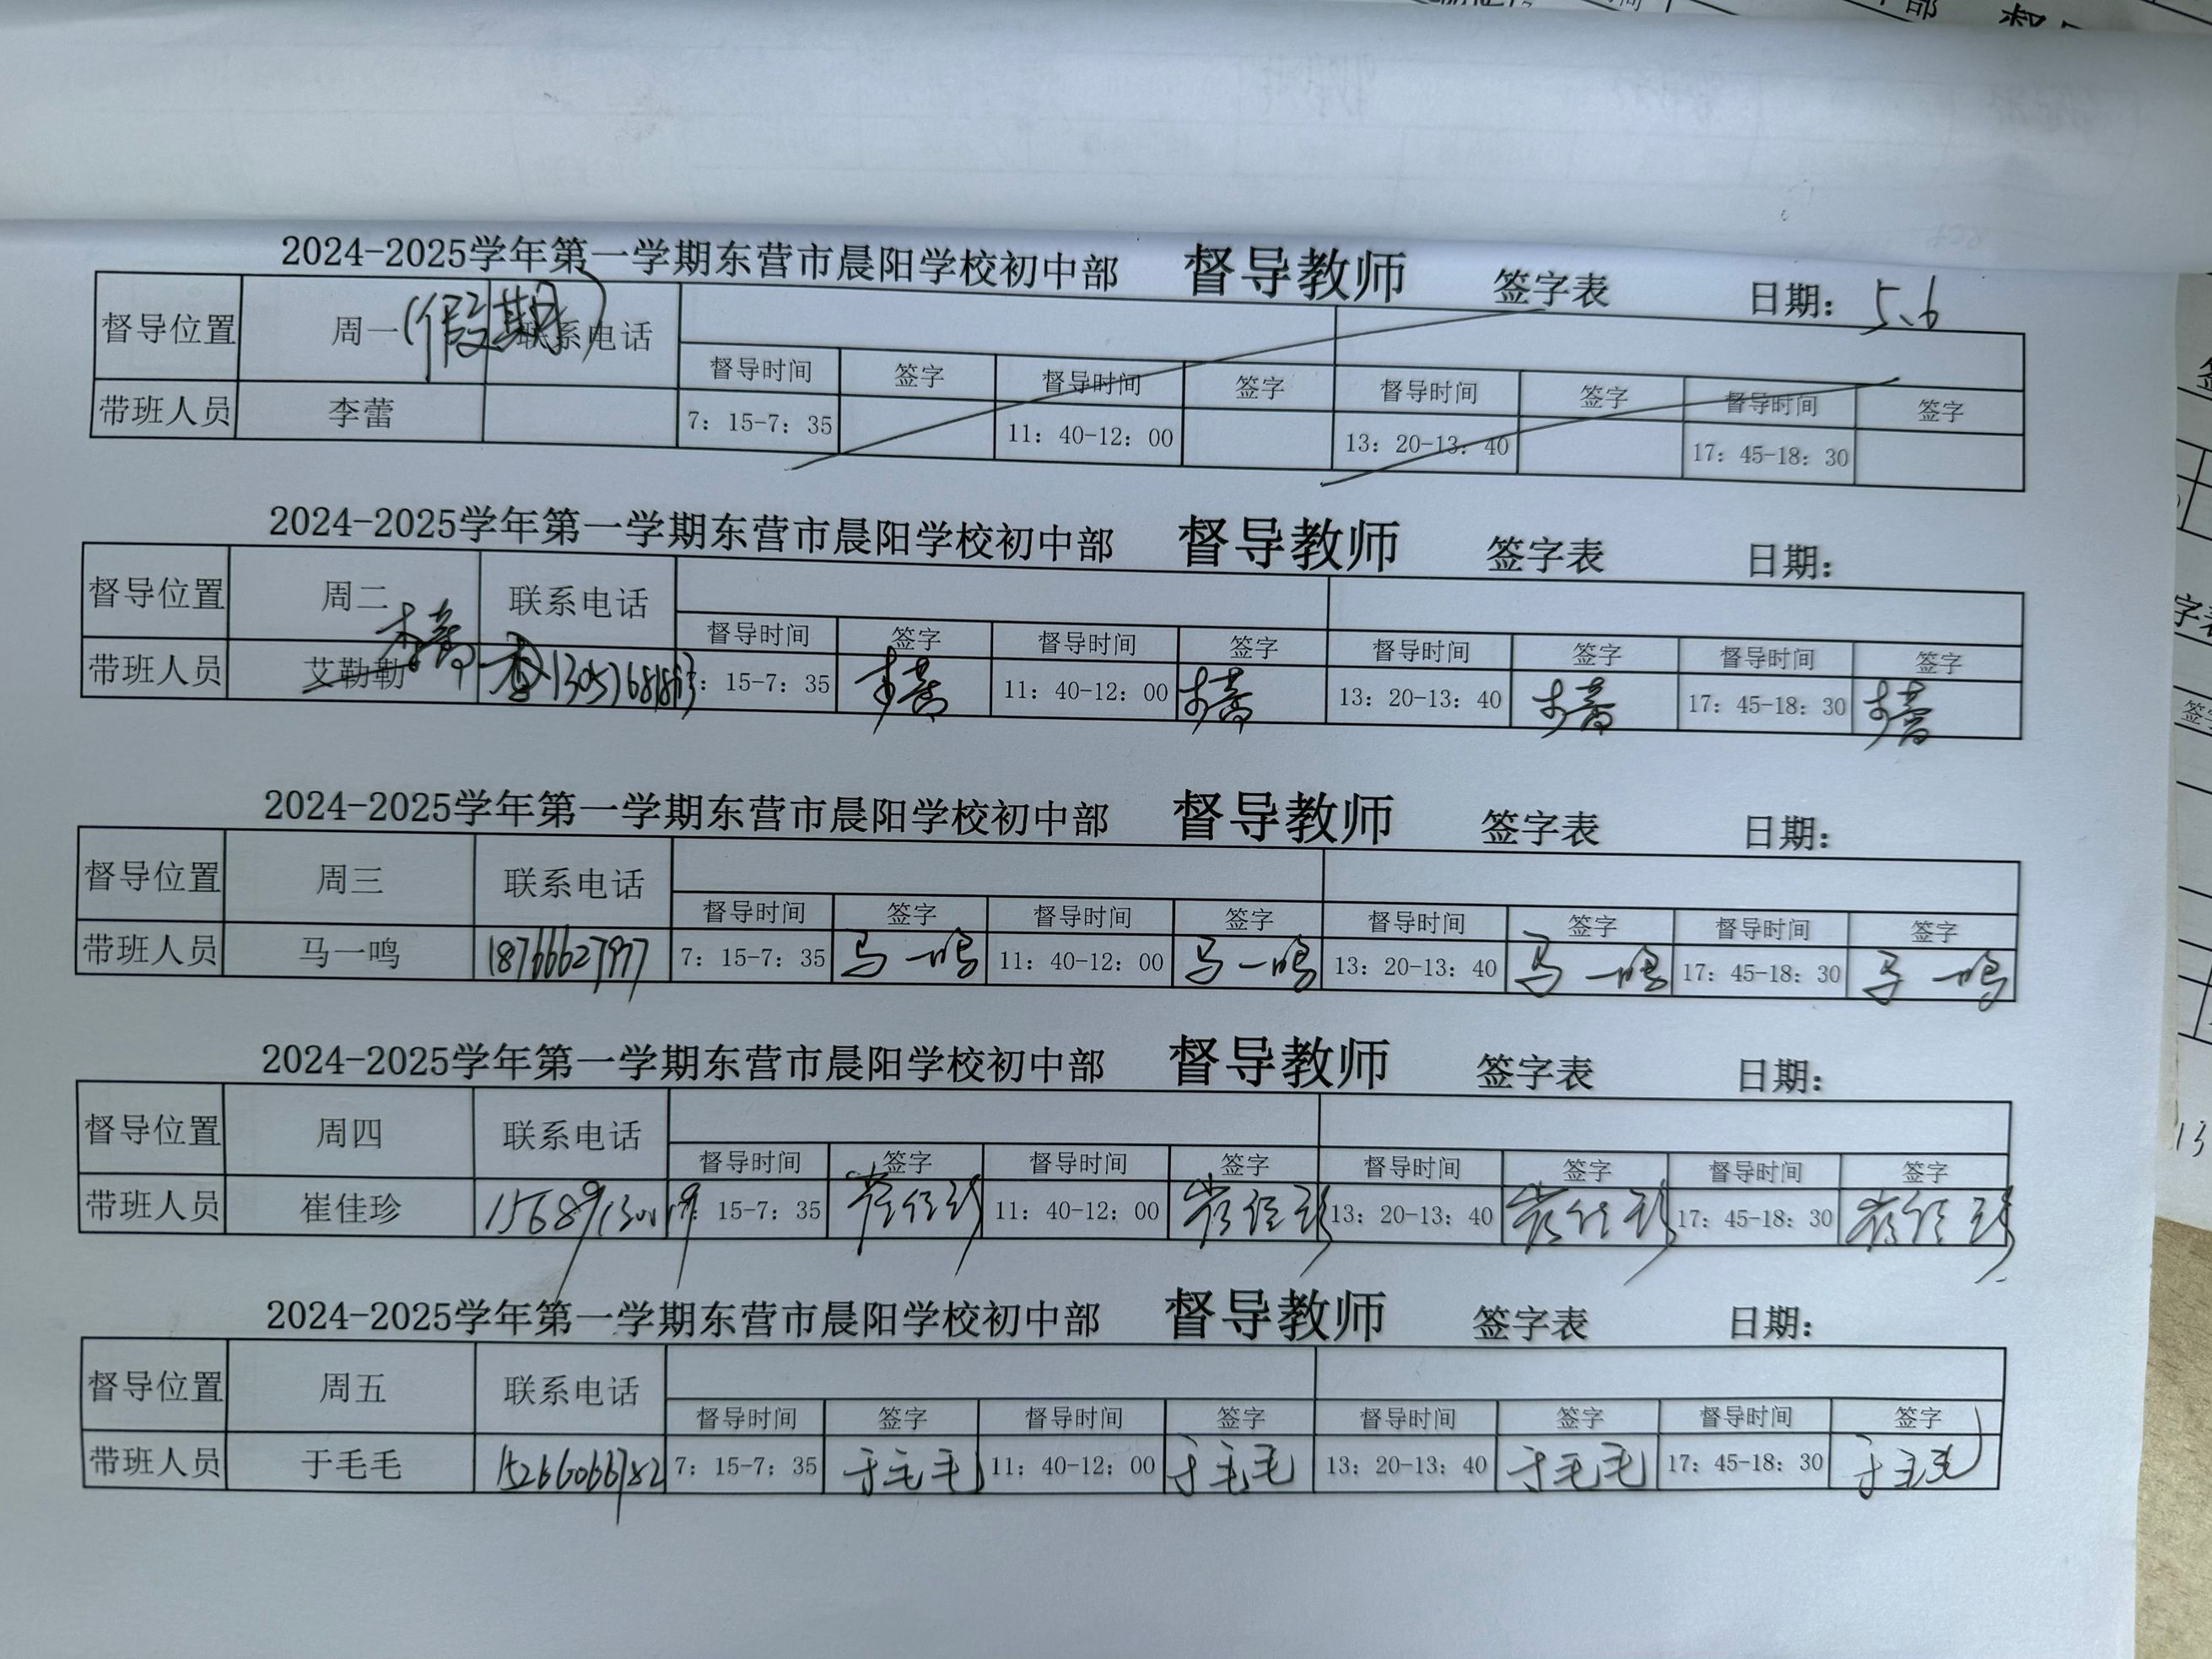 2024-2025学年第一学期东营市晨阳学校初中部 督导教师 签字表 日期: 5.6
督导位置 周一(假期) 联系电话
督导时间 签字 督导时间 签字 督导时间 签字 督导时间 签字
带班人员 李蕾 7: 15-7: 35 11: 40-12: 00 13: 20-13: 40 17: 45-18: 30
2024-2025学年第一学期东营市晨阳学校初中部 督导教师 签字表 日期:
督导位置 周二 联系电话
李蕾
督导时间 签字 督导时间 签字 督导时间 签字 督导时间 签字
带班人员 艾勒勒 7: 15-7: 35 李蕾 11: 40-12: 00 李蕾 13: 20-13: 40 李蕾 17: 45-18: 30 李蕾
2024-2025学年第一学期东营市晨阳学校初中部 督导教师 签字表 日期:
督导位置 周三 联系电话
督导时间 签字 督导时间 签字 督导时间 签字 督导时间 签字
带班人员 马一鸣 7: 15-7: 35 马一鸣 11: 40-12: 00 马一鸣 13: 20-13: 40 马一鸣 17: 45-18: 30 马一鸣
2024-2025学年第一学期东营市晨阳学校初中部 督导教师 签字表 日期:
督导位置 周四 联系电话
督导时间 签字 督导时间 签字 督导时间 签字 督导时间 签字
带班人员 崔佳珍 15-7: 35 崔佳珍 11: 40-12: 00 崔佳珍 13: 20-13: 40 崔佳珍 17: 45-18: 30 崔佳珍
2024-2025学年第一学期东营市晨阳学校初中部 督导教师 签字表 日期:
督导位置 周五 联系电话
督导时间 签字 督导时间 签字 督导时间 签字 督导时间 签字
带班人员 于毛毛 15266066782 7: 15-7: 35 于毛毛 11: 40-12: 00 于毛毛 13: 20-13: 40 于毛毛 17: 45-18: 30 于毛毛